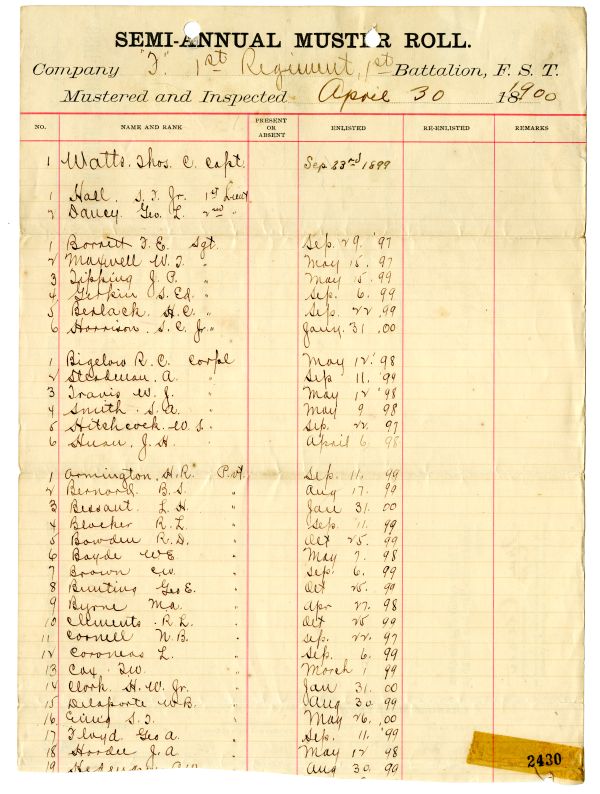 SEMI-ANNUAL MUSTER ROLL.
Company "F" 1st Regiment, 1st Battalion, F. S. T.
Mustered and Inspected April 30 1900
NO. NAME AND RANK PRESENT OR ABSENT ENLISTED RE-ENLISTED REMARKS
1 Watts. Thos. C. Capt. Sep 23rd 1899
1 Hall. S. J. Jr. 1st Lieut
2 Dancy Geo. L. 2nd "
1 Barnett J. E. Sgt. Sep. 29. '97
2 Maxwell W. J. " May 15. 97
3 Tipping J. P. " May 15. 99
4 Gerkin S. Ed. " Sep. 6. 99
5 Berlack. H. C. " Sep. 22 99
6 Harrison. S. C. Jr. " Jany. 31 .00
1 Bigelow R. C. Corpl May 12' 98
2 Steadman. A. " Sep 11. '99
3 Travis W. J. " May 12 '98
4 Smith. S. A. " May 9 98
5 Hitchcock. W. S. " Sep. 22 97
6 J. H. " April 6 98
1 Armington. H. R. Pvt. Sep. 11. 99
2 Bernard. B. S. " Aug 17. 99
3 Bessant. L. H. " Jan 31. 00
4 Blocker R. L. " Sep. 11. 99
5 Bowden R. D. " Oct 25. 99
6 Boyde W E. " May 7. 98
7 Brown C. W. " Sep. 6. 99
8 Bunting Geo E. " Oct 25. 99
9 Byrne Ma. " Apr 27. 98
10 Clements. R. L. " Oct 25 99
11 Cornell N. B. " Sep. 22. 97
12 Coronens L. " Sep. 6. 99
13 Cox. J W. " March 1 99
14 Clark. H. W. Jr. " Jan 31. 00
15 Delaporte W. B. " Aug 30 99
16 S. J. " May 26, 00
17 Floyd Geo A. " Sep. 11. '99
18 Hardee J. A. " May 12 98
19 " Aug 30. 99
2430